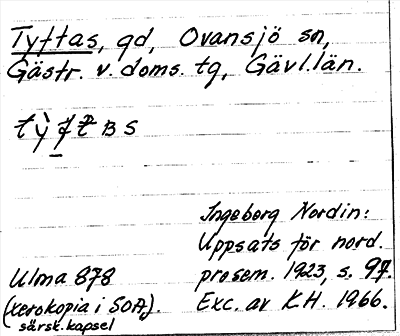 Tyttas, gd, Ovansjö sn,
Gästr. v. doms. tg, Gävl. län.
Ingeborg Nordin:
Uppsats för nord.
prosem. 1923, s. 97.
Exc. av K.H. 1966.
Ulma 878
(xerokopia i SOA).
särsk. kapsel